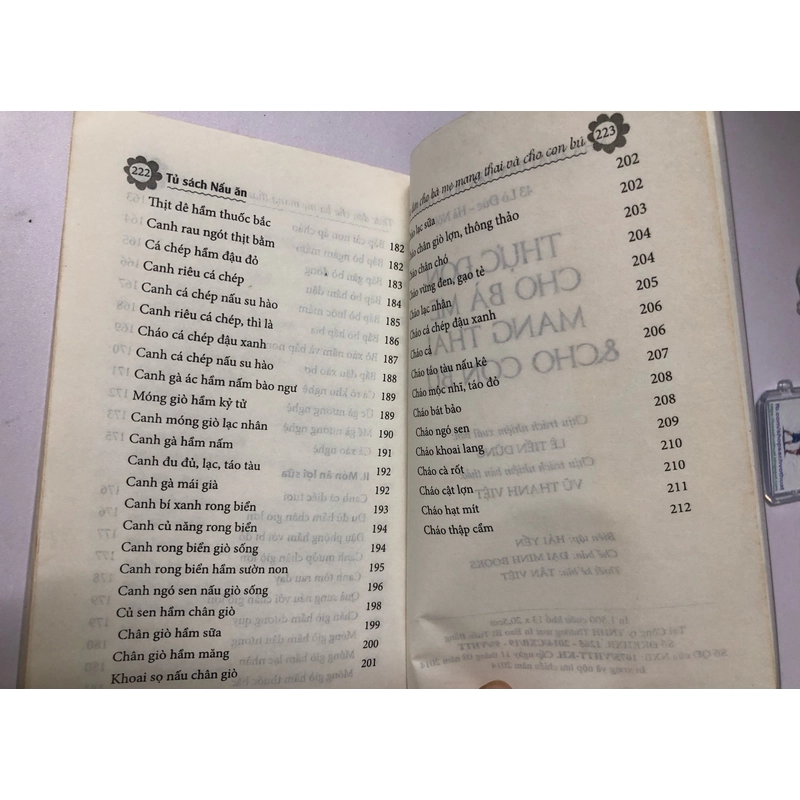 222 Tủ sách Nấu ăn
Thịt dê hầm thuốc bắc 182
Canh rau ngót thịt bằm 182
Cá chép hầm đậu đỏ 183
Canh riêu cá chép 184
Canh cá chép nấu su hào 185
Canh riêu cá chép, thì là
Cháo cá chép đậu xanh 187
Canh cá chép nấu su hào 188
Canh gà ác hầm nấm bào ngư 189
Móng giò hầm kỷ tử 189
Canh móng giò lạc nhân 190
Canh gà hầm nấm 191
Canh đu đủ, lạc, táo tàu 192
Canh gà mái già 192
Canh bí xanh rong biển 193
Canh củ năng rong biển 194
Canh rong biển giò sống 194
Canh rong biển hầm sườn non 195
Canh ngó sen nấu giò sống 196
Củ sen hầm chân giò 198
Chân giò hầm sữa 199
Chân giò hầm măng 200
Khoai sọ nấu chân giò 201
cho bà mẹ mang thai và cho con bú 223
Cháo lạc sữa 202
Cháo chân giò lợn, thông thảo 202
Cháo chân chó 203
Cháo vừng đen, gạo tẻ 204
Cháo lạc nhân 204
Cháo cá chép đậu xanh 205
Cháo cá 206
Cháo táo tàu nấu kê 206
Cháo mộc nhĩ, táo đỏ 207
Cháo bát bảo 208
Cháo ngó sen 208
Cháo khoai lang 209
Cháo cà rốt 210
Cháo cật lợn 210
Cháo hạt mít 211
Cháo thập cẩm 212